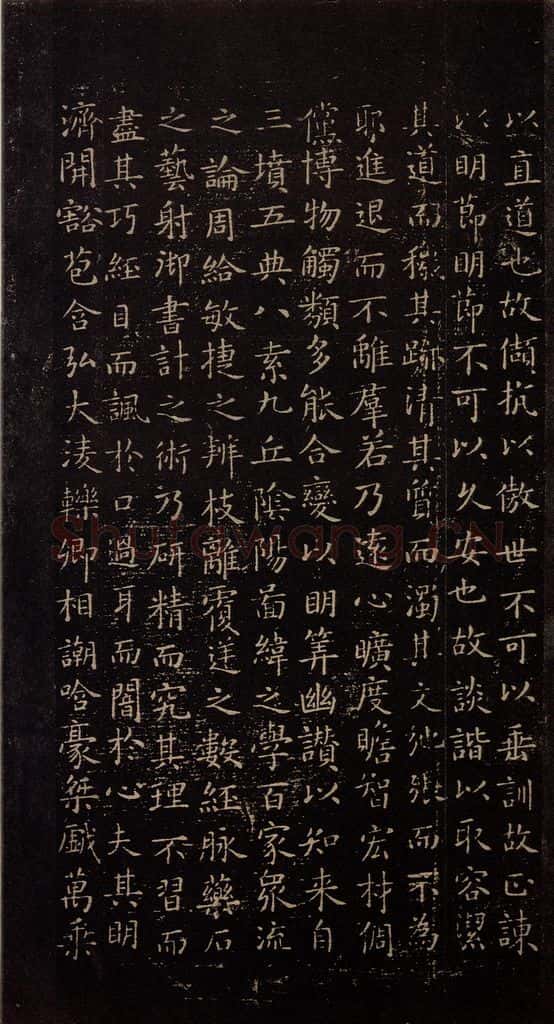 以直道也故頡抗以傲世不可以垂訓故正諫
以明節明節不可以久安也故談諧以取容潔
其道而穢其跡清其質而濁其文弛張而不為
耶進退而不離羣若乃遠心曠度贍智宏材倜
儻博物觸類多能合變以明筭幽讚以知来自
三墳五典八索九丘陰陽圖緯之學百家眾流
之論周給敏捷之辨枝離覆逆之數經脉藥石
之藝射御書計之術乃研精而究其理不習而
盡其巧經目而諷於口過耳而闇於心夫其明
濟開豁苞含弘大淩轢卿相謿哈豪桀戲萬乘
Shufawang.CN